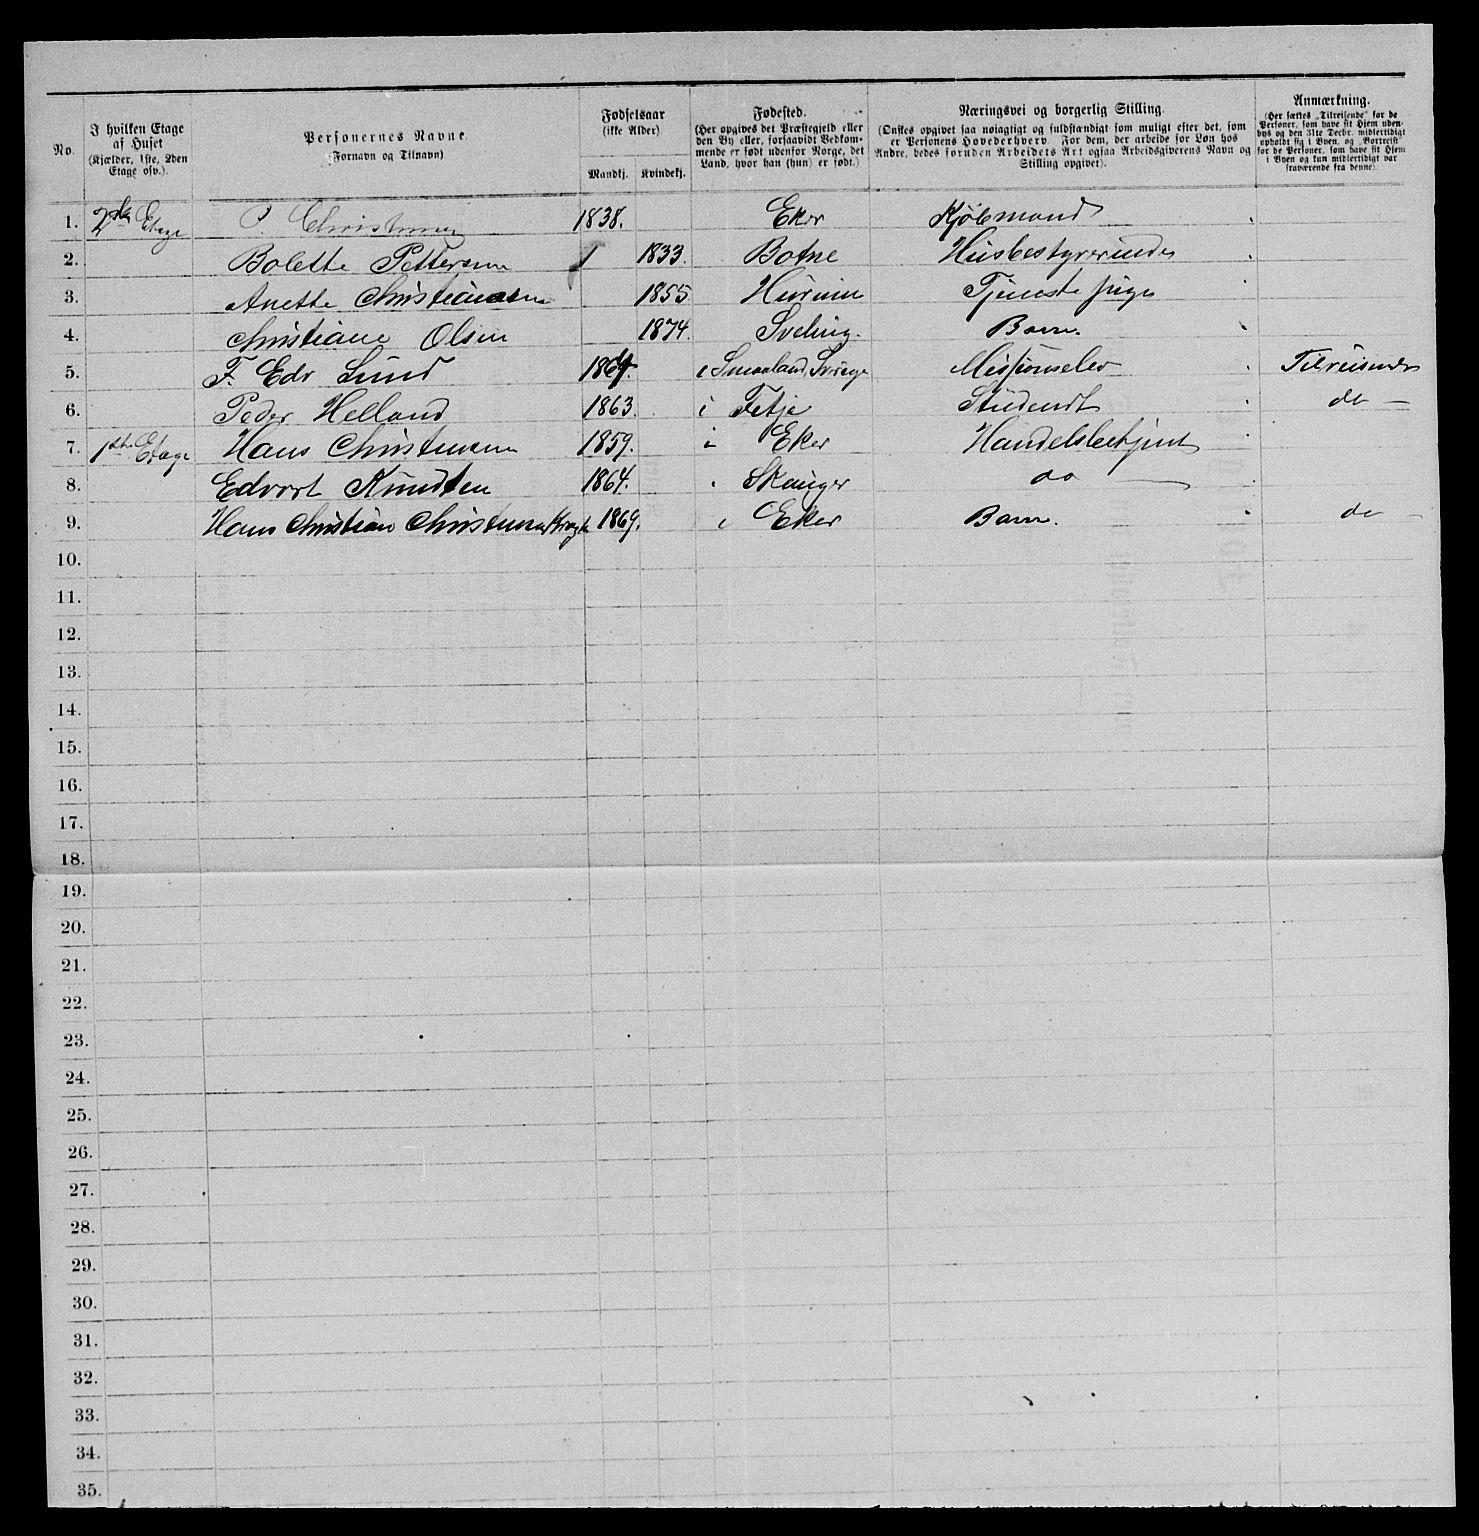 No.
I hvilken Etage af Huset
(Kjælder, 1ste, 2den Etage osv.).
Personernes Navne.
(Fornavn og Tilnavn)
Fødselsaar
(ikke Alder)
Mandkj. Kvindekj.
Fødested.
(Her opgives det Præstegjeld eller den By eller, forsaavidt Vedkommende er født udenfor Norge, det Land, hvor han (hun) er født.)
Næringsvei og borgerlig Stilling.
(Ønskes opgivet saa nøiagtigt og fuldstændigt som muligt efter det, som er Personens Hovederhverv. For dem, der arbeide for Løn hos Andre, bedes foruden Arbeidets Art ogsaa Arbeidsgiverens Navn og Stilling opgivet).
Anmærkning.
(Her sættes „Tilreisende" for de Personer, som have sit Hjem udenbys og den 31te Decbr. midlertidigt opholdt sig i Byen, og „Bortreist" for de Personer, som have sit Hjem i Byen og kun midlertidigt var fraværende fra denne).
1. 2den Etage P. Christensen 1838. Eker Kjöbmand
2. Bolette Pettersen 1833. Botne Husbestyrerinde
3. Anette Christiansen 1855 Hurum Tjenestepige
4. Christiane Olsen 1874. Svelvig. Barn.
5. F. Edv Lund 1864. i Smaaland Sverige Missionselev Tilreisende
6. Peder Helland 1863. i Fetje Studendt do —
7. 1ste Etage Hans Christensen 1859. i Eker Handelsbetjent
8. Edvart Knudsen 1864. Skauger do —
9. Hans Christian Christensen 1869. i Eker Barn. do —
10.
11.
12.
13.
14.
15.
16.
17.
18.
19.
20.
21.
22.
23.
24.
25.
26.
27.
28.
29.
30.
31.
32.
33.
34.
35.